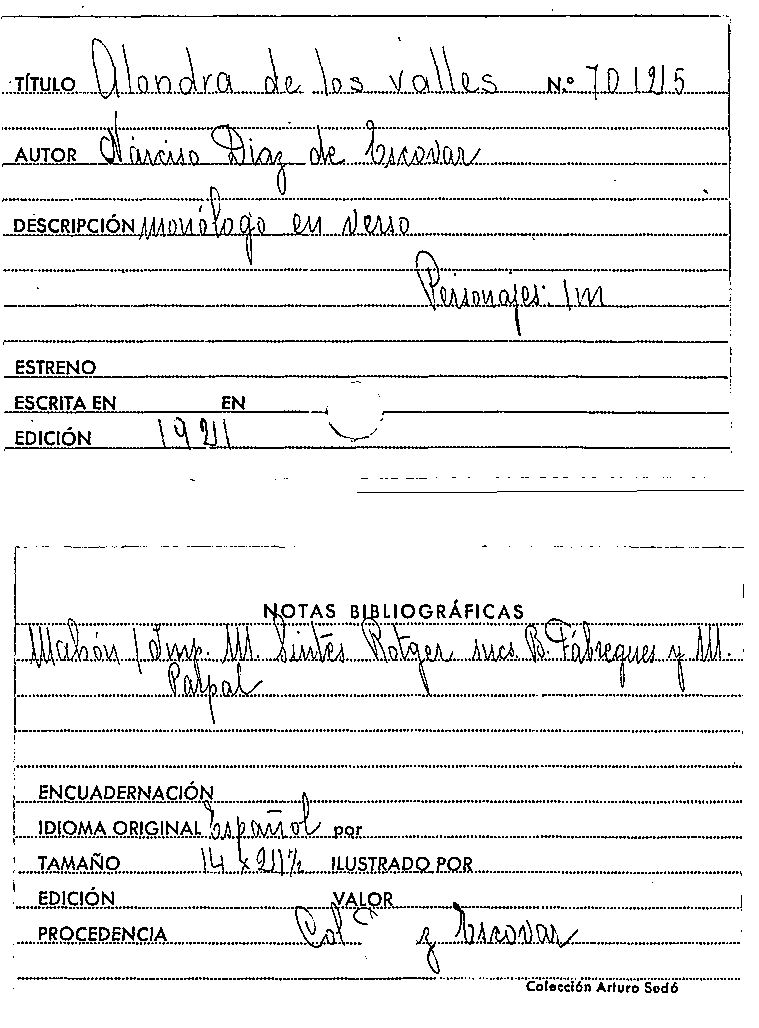 TÍTULO Alondra de los valles N.º 70125
AUTOR Narciso Diaz de Escovar
DESCRIPCIÓN monólogo en verso
Personajes: 1m
ESTRENO
ESCRITA EN EN
EDICIÓN 1921
NOTAS BIBLIOGRÁFICAS
Mahón / Imp. M. Sintes Rotger sucs. B. Fábregues y M.
Palpal
ENCUADERNACIÓN
IDIOMA ORIGINAL Español por
TAMAÑO 14 x 21½ ILUSTRADO POR
EDICIÓN VALOR
PROCEDENCIA Col Escovar
Colección Arturo Sedó